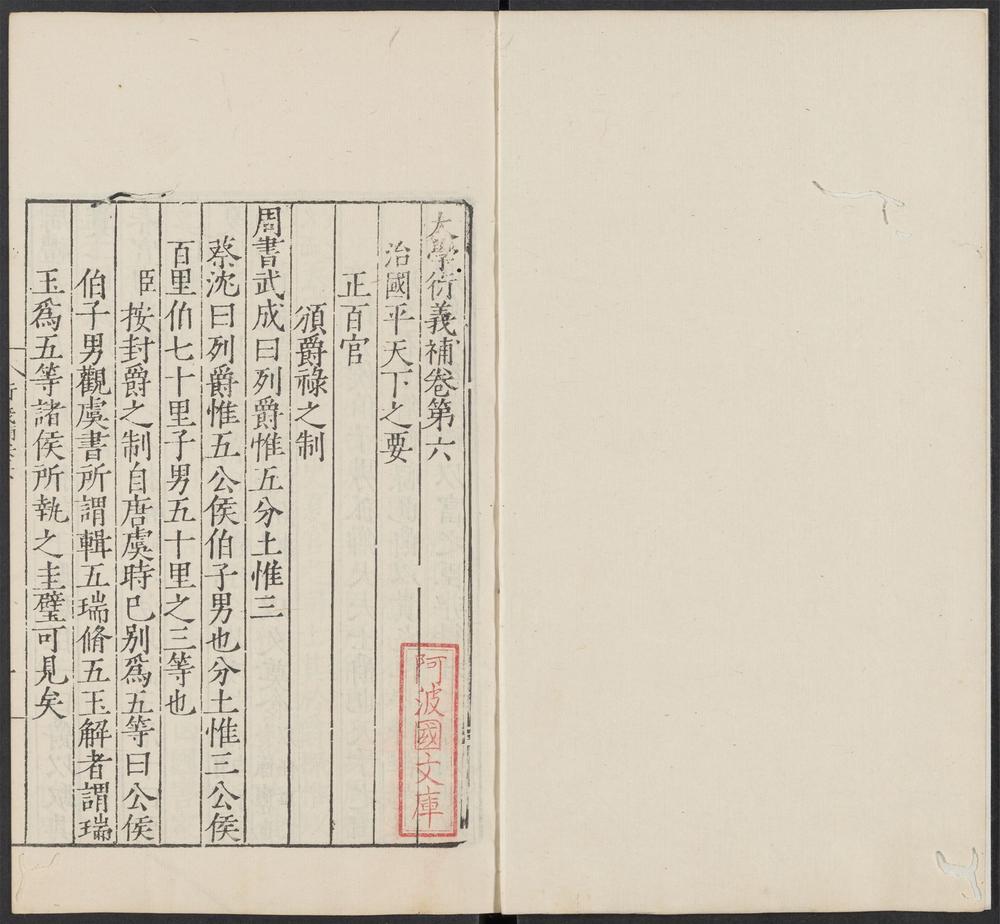 大學衍義補卷第六
治國平天下之要
正百官
頒爵祿之制
周書武成曰列爵惟五分土惟三
蔡沈曰列爵惟五公侯伯子男也分土惟三公侯
百里伯七十里子男五十里之三等也
臣按封爵之制自唐虞時已别爲五等曰公侯
伯子男觀虞書所謂輯五瑞脩五玉解者謂瑞
玉爲五等諸侯所執之圭璧可見矣
阿波國文庫